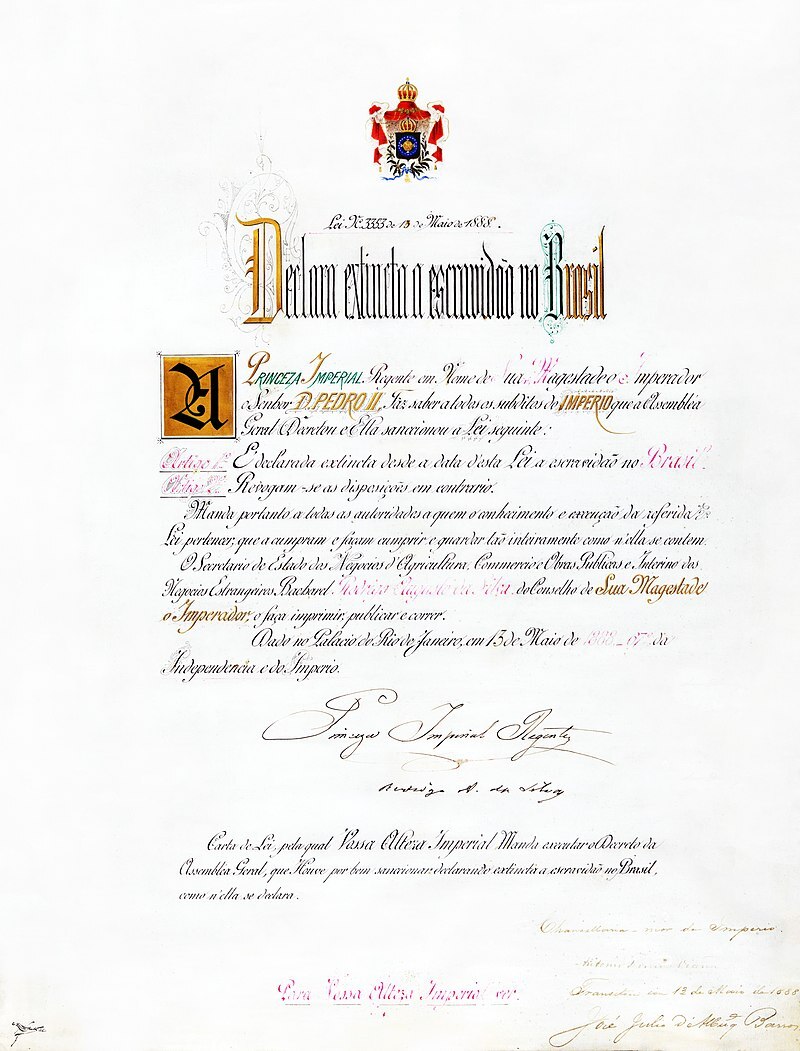 Lei Nº 3353 de 13 de Maio de 1888.
Declara extincta a escravidão no Brasil
A PRINCEZA IMPERIAL Regente em Nome de Sua Magestade o Imperador
o Senhor D. PEDRO II, Faz saber a todos os subditos do IMPERIO que a Assembléa
Geral Decretou e Ella sanccionou a Lei seguinte:
Artigo 1º E declarada extincta desde a data desta Lei a escravidão no Brasil.
Artigo 2º Revogam-se as disposições em contrario.
Manda portanto a todas as autoridades a quem o conhecimento e execução da referida
Lei pertencer, que a cumpram e façam cumprir e guardar tão inteiramente como n'ella se contem.
O Secretario de Estado dos Negocios d'Agricultura, Commercio e Obras Publicas e Interino dos
Negocios Estrangeiros Bacharel Rodrigo Augusto da Silva, do Conselho de Sua Magestade
o Imperador, o faça imprimir, publicar e correr.
Dado no Palacio do Rio de Janeiro, em 13 de Maio de 1888 - 67º da
Independencia e do Imperio.
Princeza Imperial Regente
Rodrigo A. da Silva
Carta de Lei, pela qual Vossa Alteza Imperial Manda executar o Decreto da
Assembléa Geral, que Houve por bem sanccionar, declarando extincta a escravidão no Brasil,
como n'ella se declara.
Chancellaria-mor do Imperio.
Transitou em 13 de Maio de 1888
Para Vossa Alteza Imperial ver.
José Julio d'Albuqº Barros